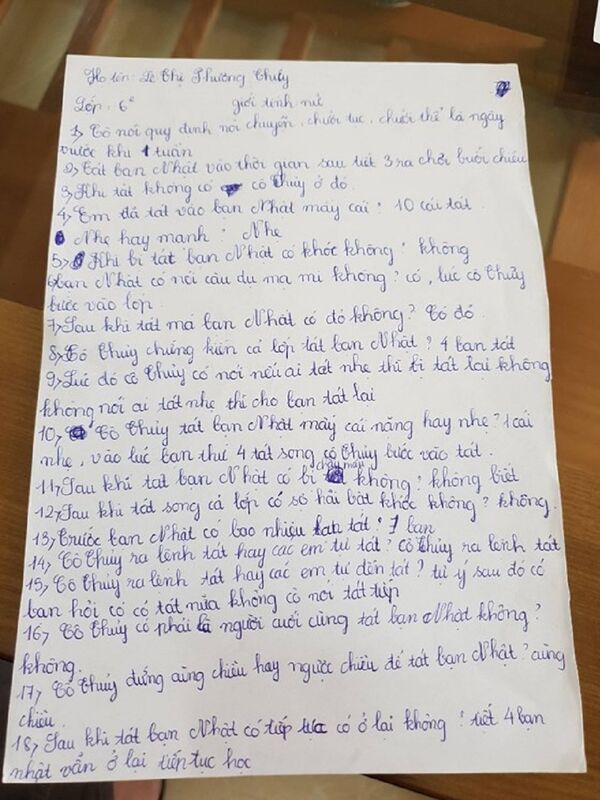 Họ tên: Lê Thị Phương Thuỳ
Lớp: 6² giới tính nữ
1, Cô nói quy định nói chuyện, chửi tục, chửi thề là ngày
trước khi 1 tuần
2, Tát bạn Nhật vào thời gian sau tiết 3 ra chơi buổi chiều
3, Khi tát không có cô Thủy ở đó.
4, Em đã tát vào bạn Nhật mấy cái? 10 cái tát.
Nhẹ hay mạnh? Nhẹ
5, Khi bị tát bạn Nhật có khóc không? không
6, bạn Nhật có nói câu dụ mạ mi không? có, lúc cô Thủy
bước vào lớp.
7, Sau khi tát má bạn Nhật có đỏ không? Có đỏ.
8, Cô Thủy chứng kiến cả lớp tát bạn Nhật? 4 bạn tát
9, Lúc đó cô Thủy có nói nếu ai tát nhẹ thì bị tát lại không
không nói ai tát nhẹ thì cho bạn tát lại
10, Cô Thủy tát bạn Nhật mấy cái nặng hay nhẹ? 1 cái
nhẹ, vào lúc bạn thứ 4 tát song cô Thủy bước vào tát.
11, Sau khi tát bạn Nhật có bị chảy máu không? không biết
12, Sau khi tát song cả lớp có sợ hãi bật khóc không? không.
13, Trước bạn Nhật có bao nhiêu bạn tát? 7 bạn
14, Cô Thủy ra lệnh tát hay các em tự tát? Cô Thủy ra lệnh tát
15, Cô Thủy ra lệnh tát hay các em tự đến tát? tự ý sau đó có
bạn hỏi cô có tát nữa không cô nói tát tiếp
16, Cô Thủy có phải là người cuối cùng tát bạn Nhật không?
không.
17, Cô Thủy đứng cùng chiều hay ngược chiều để tát bạn Nhật? cùng
chiều.
18, Sau khi tát bạn Nhật có tiếp tục có ở lại không? tiết 4 bạn
nhật vẫn ở lại tiếp tục học